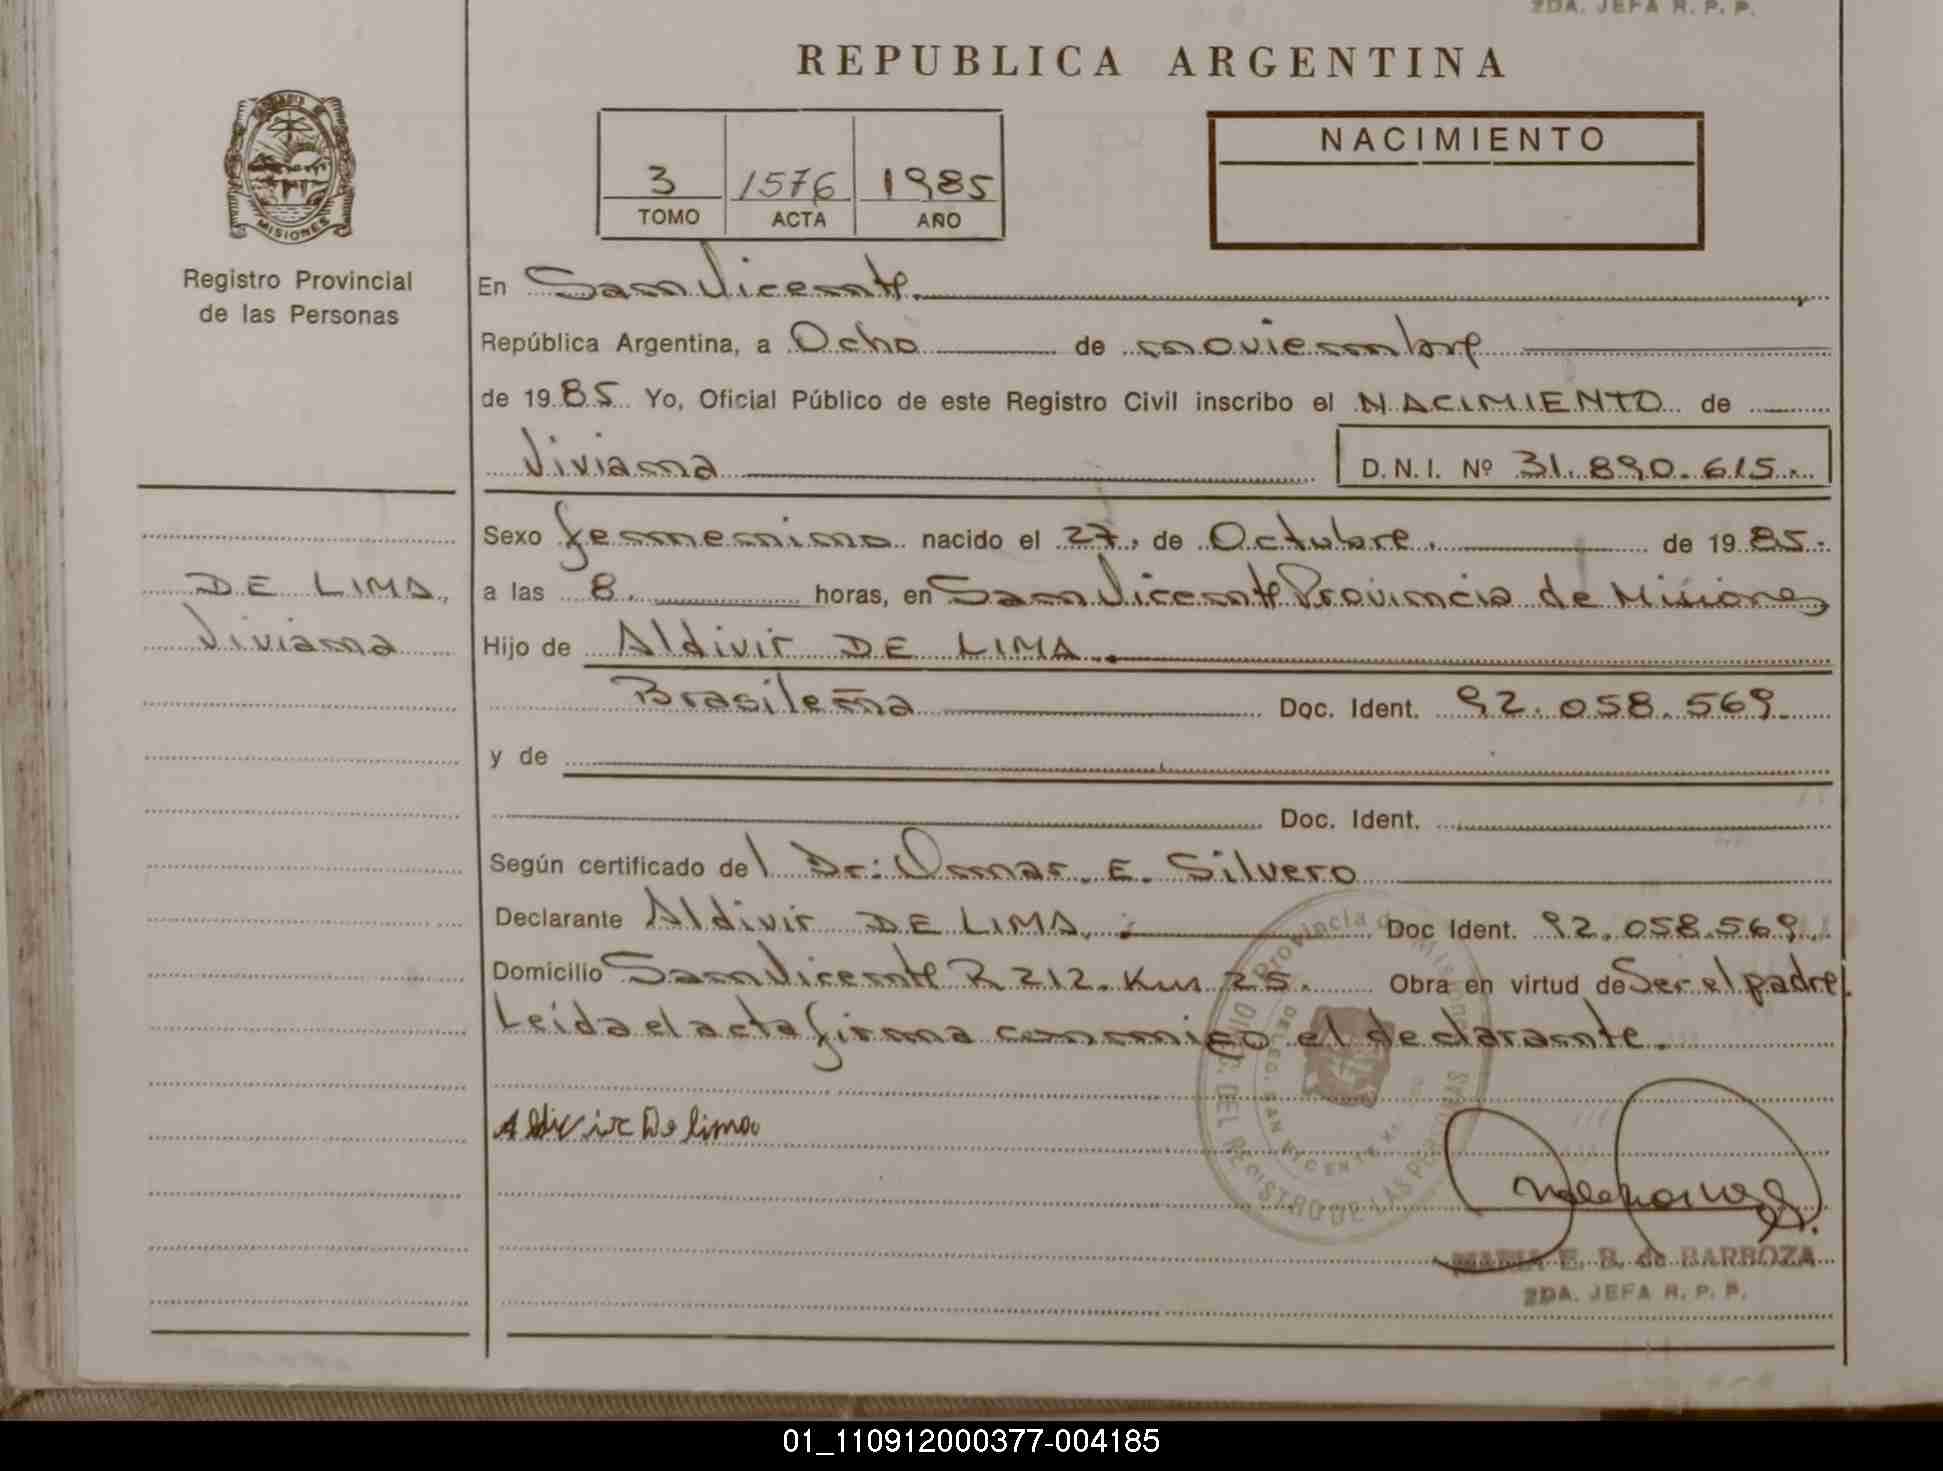 2DA. JEFA R. P. P.
REPUBLICA ARGENTINA
MISIONES
Registro Provincial
de las Personas
3 1576 1985
TOMO ACTA AÑO
NACIMIENTO
En San Vicente.
República Argentina, a Ocho de noviembre
de 1985 Yo, Oficial Público de este Registro Civil inscribo el NACIMIENTO de
Viviana D.N.I. Nº 31.890.615.
DE LIMA,
Viviana
Sexo femenino nacido el 27, de Octubre. de 1985.
a las 8. horas, en San Vicente Provincia de Misiones
Hijo de Aldivir DE LIMA.
Brasileña Doc. Ident. 92.058.569
y de
Doc. Ident.
Según certificado del Dr: Omar. E. Silvero
Declarante Aldivir DE LIMA, Doc Ident. 92.058.569.
Domicilio San Vicente R 212. Km 25. Obra en virtud de Ser el padre.
Leida el acta firma conmigo el declarante.
Aldivir De lima
Provincia de Misiones
DIREC. DEL REGISTRO DE LAS PERSONAS
DELEG. SAN VICENTE
MARIA E. B. de BARBOZA
2DA. JEFA R. P. P.
01_110912000377-004185